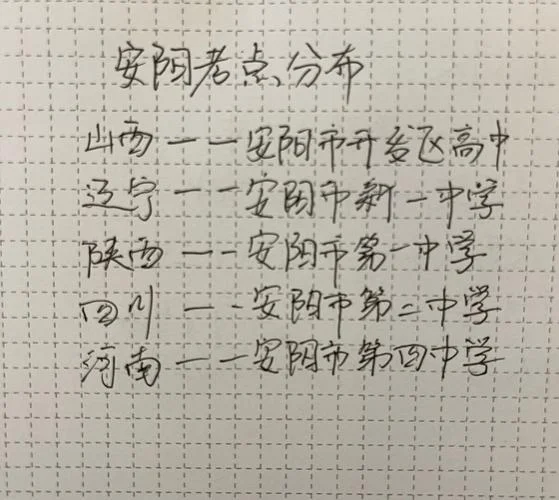 安阳考点分布
山西——安阳市开发区高中
辽宁——安阳市新一中学
陕西——安阳市第一中学
四川——安阳市第二中学
河南——安阳市第四中学